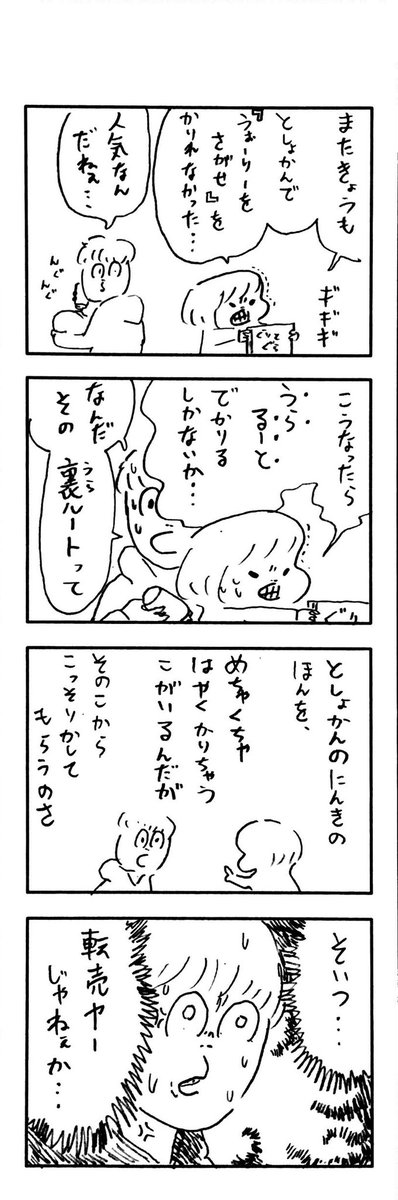 またきょうも
としょかんで
『うぉーりーを
さがせ』を
かりれなかった・・・
人気なん
だねぇ・・・
ギギギ
んぐ
んぐ
ぐりと
ぐら
こうなったら
うら
るーと
でかりる
しかないか・・・
なんだ
その
裏ルートって
うら
ぐり
としょかんのにんきの
ほんを、
めちゃくちゃ
はやくかりちゃう
こがいるんだが
そのこから
こっそりかして
もらうのさ
そいつ・・・
転売ヤー
じゃねぇか・・・